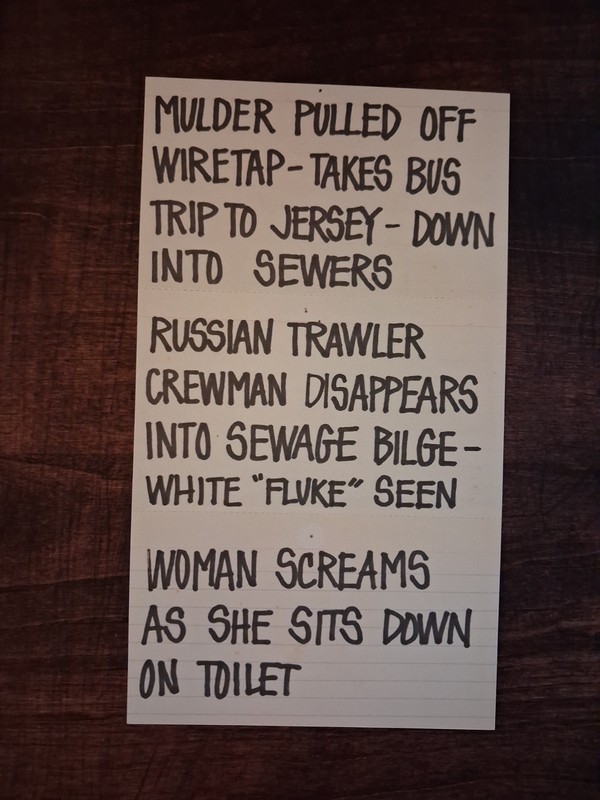 MULDER PULLED OFF
WIRETAP-TAKES BUS
TRIP TO JERSEY - DOWN
INTO SEWERS
RUSSIAN TRAWLER
CREWMAN DISAPPEARS
INTO SEWAGE BILGE-
WHITE "FLUKE" SEEN
WOMAN SCREAMS
AS SHE SITS DOWN
ON TOILET